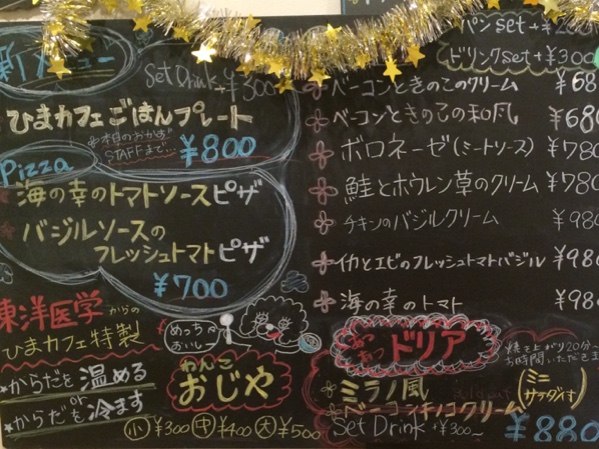 新メニュー
Set Drink +¥300
ひまカフェごはんプレート
※本日のおかずは
STAFFまで… ¥800
Pizza
海の幸のトマトソースピザ
バジルソースの
フレッシュトマトピザ
¥700
東洋医学からの
ひまカフェ特製
★からだを温める
or
★からだを冷ます
めっちゃ
おいしー
わんこ
おじや
小 ¥300 中 ¥400 大 ¥500
パンset+
ドリンクset+¥300
ベーコンときのこのクリーム
ベーコンときのこの和風
ボロネーゼ(ミートソース) ¥780
鮭とホウレン草のクリーム ¥780
チキンのバジルクリーム ¥980
イカとエビのフレッシュトマトバジル ¥980
海の幸のトマト
あつあつ ドリア
焼き上がり20分〜
お時間いただきます
ミラノ風
ベーコンキノコクリーム
(ミニサラダ付)
Set Drink +¥300〜
¥880